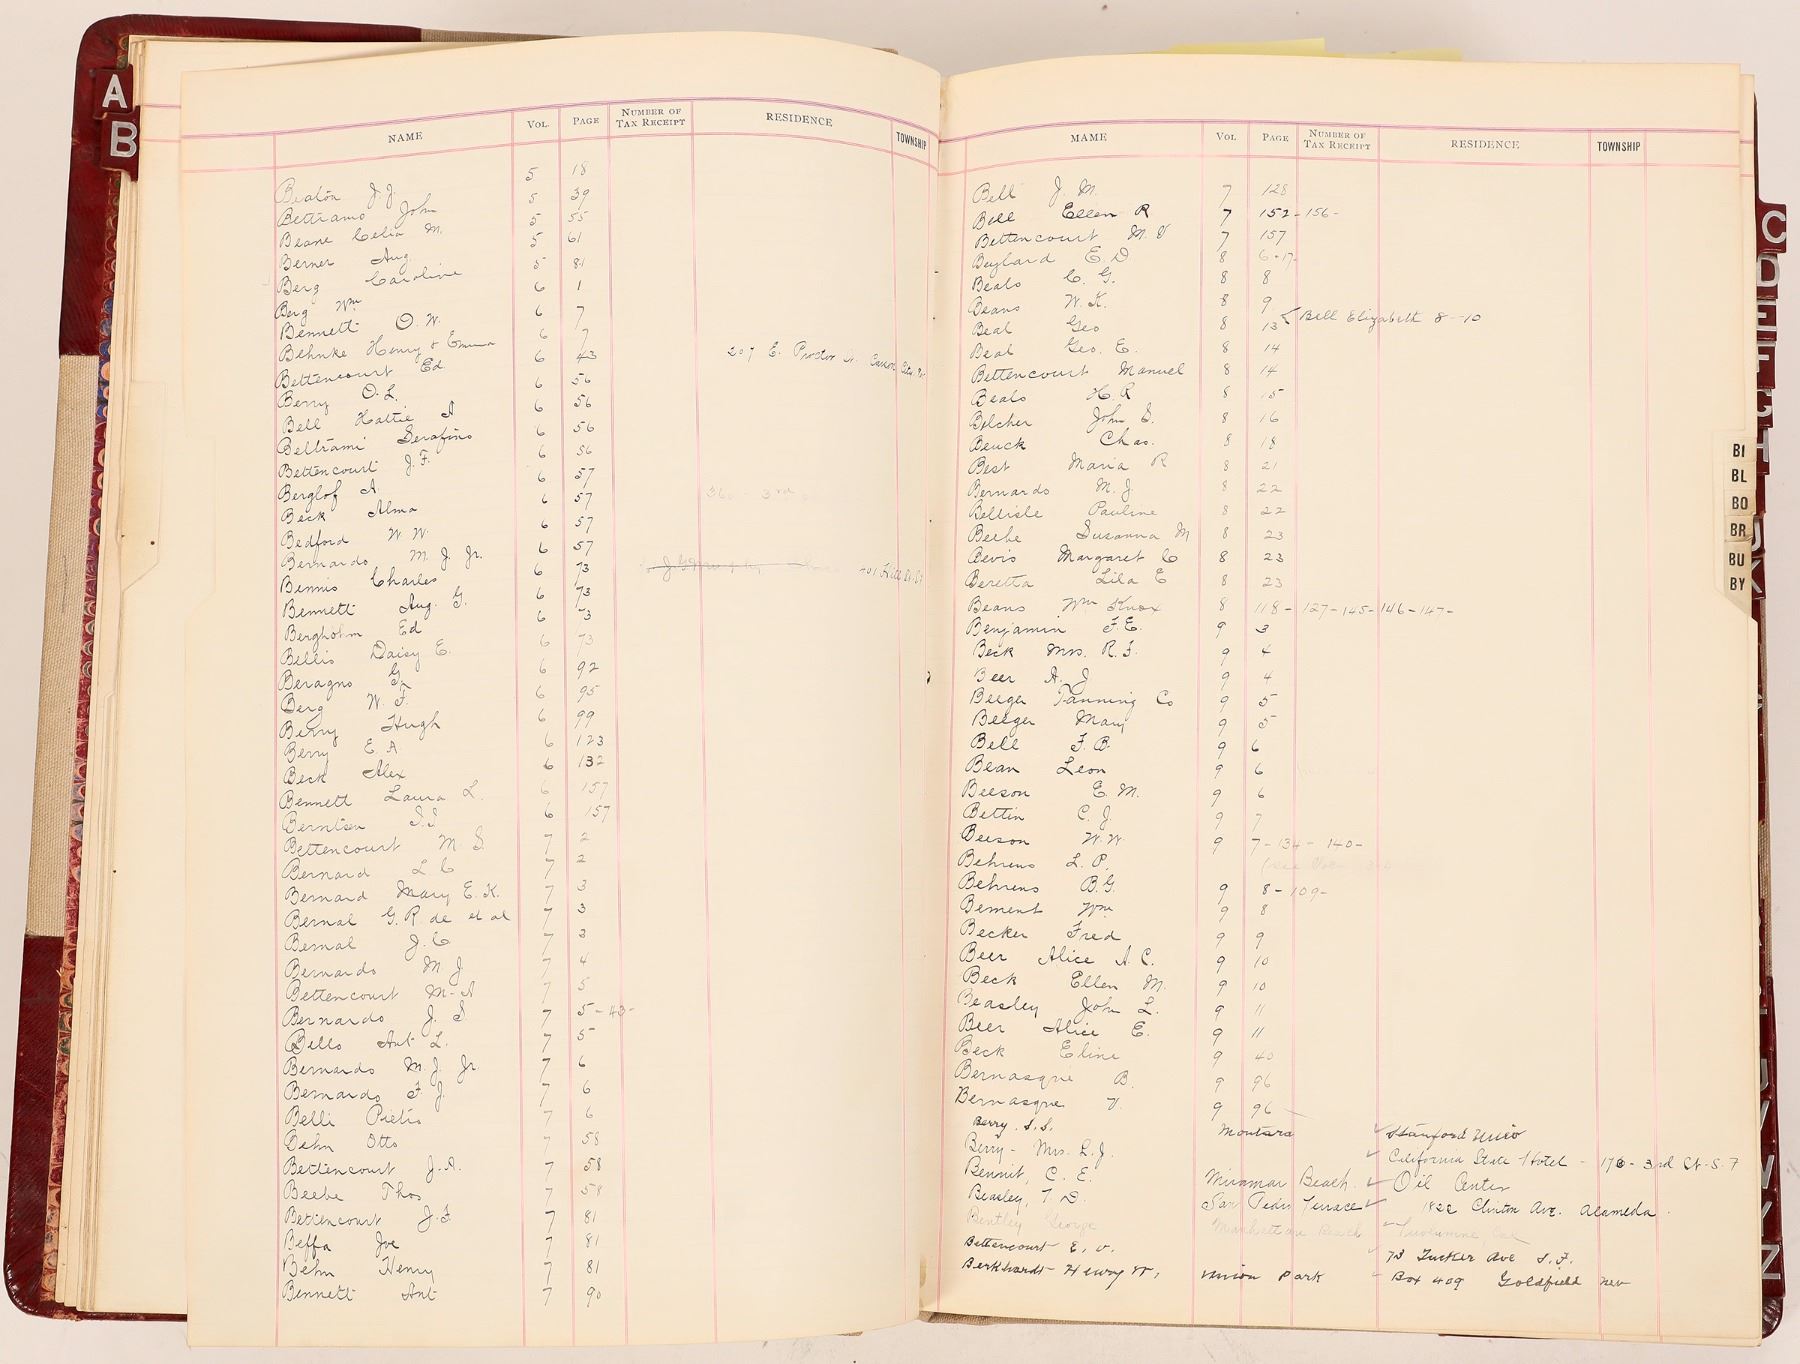 A
B
NAME VOL. PAGE NUMBER OF TAX RECEIPT RESIDENCE TOWNSHIP
Beaton J. J. 5 18
Beltramo John 5 39
Beane Celia M. 5 55
Berner Aug. 5 61
Berg Caroline 5 81
Berg Wm 6 1
Bennett O. W. 6 7
Behnke Henry & Emma 6 7
Bettencourt Ed 6 43 207 E. Proctor St. Carson City Nev
Berry O. L. 6 56
Bell Hattie A 6 56
Beltrami Serafino 6 56
Bettencourt J. F. 6 56
Berglof A. 6 57
Beck Alma 6 57 3rd
Bedford W. W. 6 57
Bernardo M. J. Jr. 6 57
Bennis Charles 6 73
Bennett Aug. G. 6 73
Bergholm Ed 6 73
Bellis Daisy E. 6 73
Beragno G. 6 92
Berg W. F. 6 95
Berry Hugh 6 99
Berry E. A 6 123
Beck Alex 6 132
Bennett Laura L. 6 157
Berntsen I. I. 6 157
Bettencourt M. S. 7 2
Bernard L C 7 2
Bernard Mary E. K. 7 3
Bernal G. R. de et al 7 3
Bernal J. C 7 3
Bernardo M. J. 7 4
Bettencourt M-A 7 5
Bernardo J. S. 7 5-43-
Bello Ant L. 7 5
Bernardo M. J. Jr. 7 6
Bernardo F. J. 7 6
Belli Pietro 7 6
Dehn Otto 7 58
Bettencourt J. A. 7 58
Beebe Thos 7 58
Bettencourt J. F. 7 81
Beffa Joe 7 81
Behn Henry 7 81
Bennett Ant 7 90
MAME VOL PAGE NUMBER OF TAX RECEIPT RESIDENCE TOWNSHIP
Bell J. M. 7 128
Bell Ellen R 7 152-156-
Bettencourt M. V 7 157
Baylard E. D 8 6-17-
Beals C. G. 8 8
Beans W. K. 8 9
Bell Elizabeth 8-10
Beal Geo 8 13
Beal Geo. E. 8 14
Bettencourt Manuel 8 14
Beals H. R 8 15
Belcher John S. 8 16
Beuck Chas. 8 18
Best Maria R 8 21
Bernardo M. J. 8 22
Bellisle Pauline 8 22
Beebe Susanna M 8 23
Bevis Margaret C 8 23
Beretta Lila E 8 23
Beans Wm Knox 8 118-127-145-146-147-
Benjamin F. E. 9 3
Beck Mrs. R. F. 9 4
Beer A. J 9 4
Beeger Tanning Co 9 5
Beeger Mary 9 5
Bell F. B. 9 6
Bean Leon 9 6
Beeson E. M. 9 6
Bettin C. J. 9 7
Beeson W. W. 9 7-134-140-
Behrens L. P. (see Vol
Behrens B. G. 9 8-109-
Bement Wm 9 8
Becker Fred 9 9
Beer Alice A. C. 9 10
Beck Ellen M. 9 10
Beasley John L. 9 11
Beer Alice E. 9 11
Beck Eline 9 40
Bernasque B. 9 96
Bernasque V. 9 96
Berry. S. S. Montara Stanford Univ
Berry- Mrs. L. J. California State Hotel - 170-3rd St. S. F
Bennit, C. E. Miramar Beach. Oil Center
Beasley, T. D. San Pedro Terrace 1822 Clinton Ave. Alameda.
Bentley George Manhattan Beach Cal
Bettencourt E. V. 73 Tucker Ave S. F.
Berkhardt Henry W, Union Park Box 409 Goldfield Nev
C
D
E
F
G
H
BI
BL
BO
BR
BU
BY
K
V
Y
Z